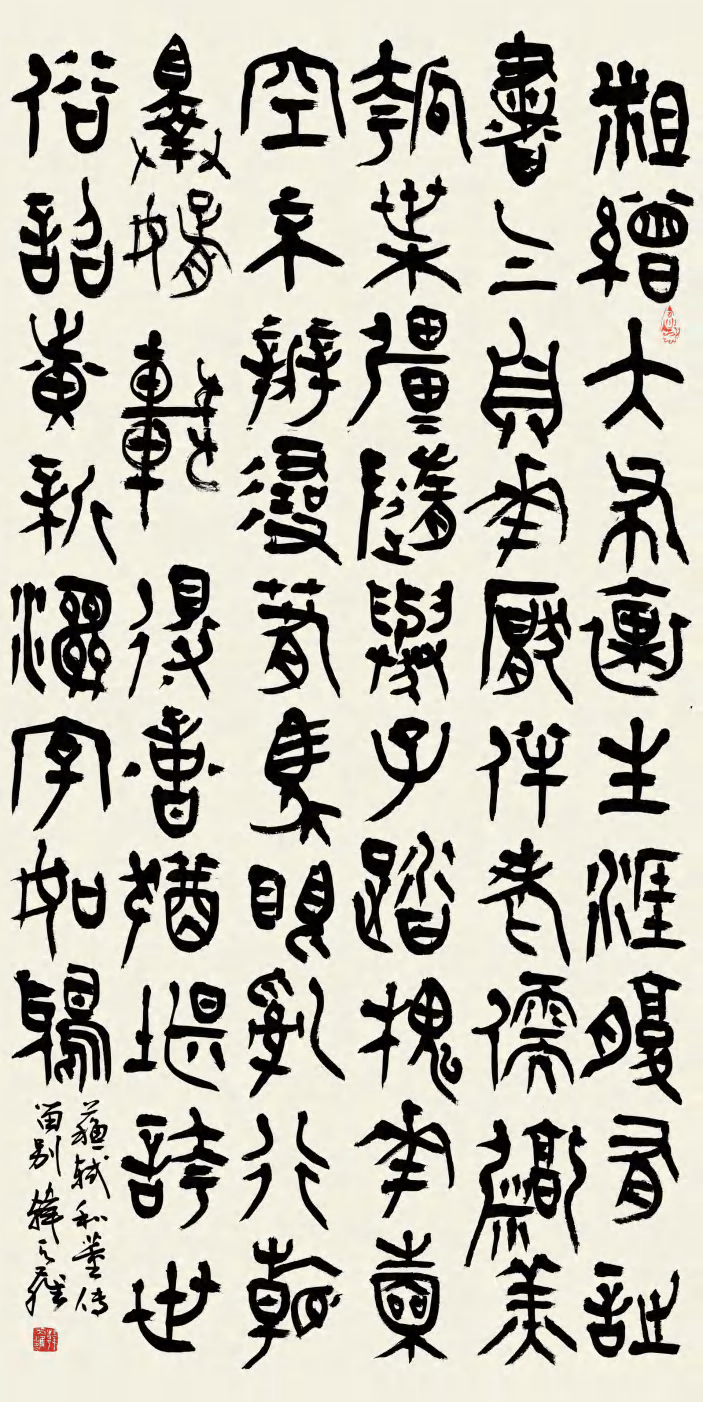 粗繒大布裹生涯腹有詩
書气自華厭伴老儒烹
瓠葉彊隨舉子踏槐華囊
空不辦尋春馬眼亂行看
擇婿車得意猶堪誇世
俗詔黃新濕字如鴉
蘇軾和董传
留别 韓天雍